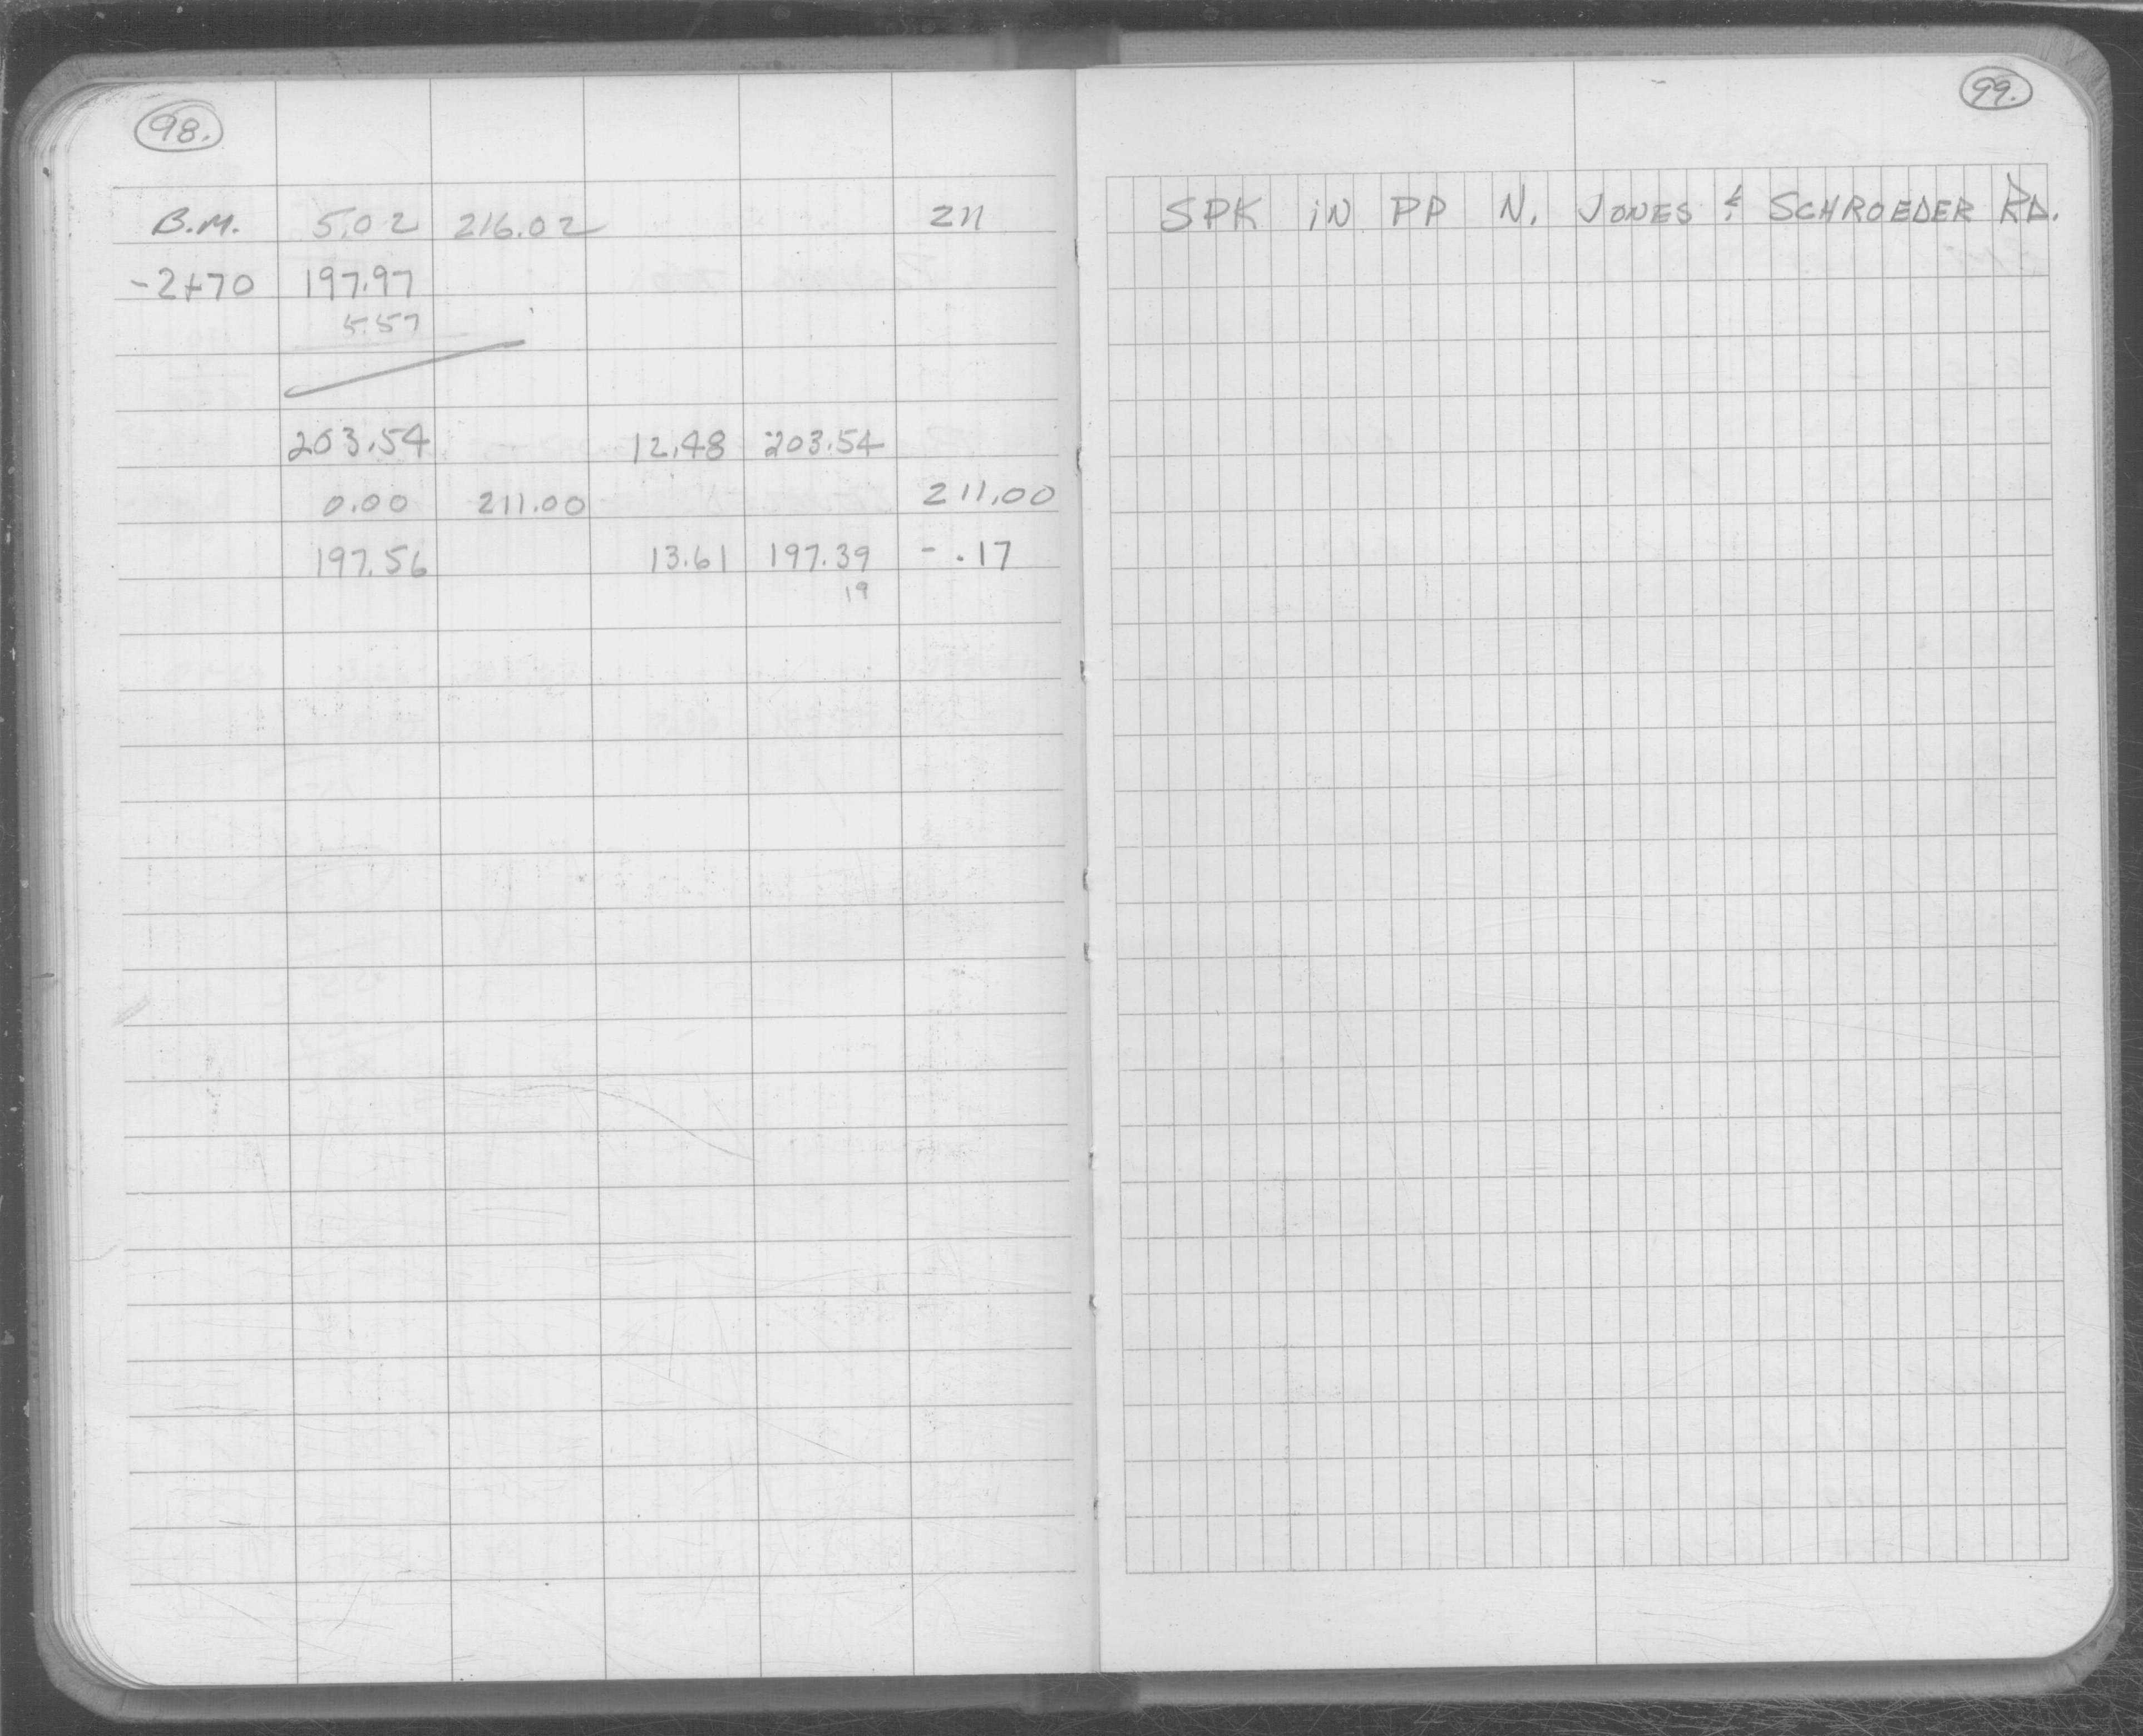 98.
B.M. 5.02 216.02 211
-2+70 197.97
5.57
203.54 12.48 203.54
0.00 211.00 211.00
197.56 13.61 197.39 - .17
19
99.
SPK iN PP N. JONES & SCHROEDER RD.